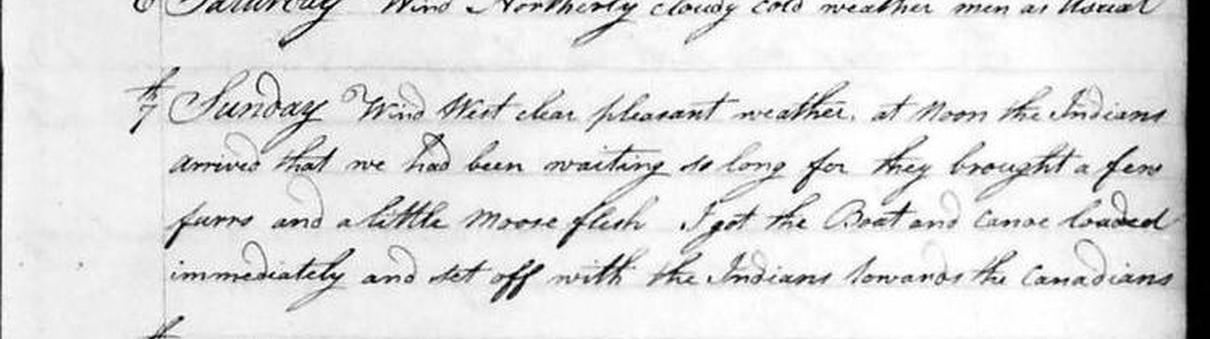 Saturday Wind Northerly cloudy cold weather men as Usual
7th Sunday Wind West clear pleasant weather. at Noon the Indians
arrived that we had been waiting so long for they brought a few
furrs and a little Moose flesh I got the Boat and Canoe loaded
immediately and set off with the Indians towards the Canadians